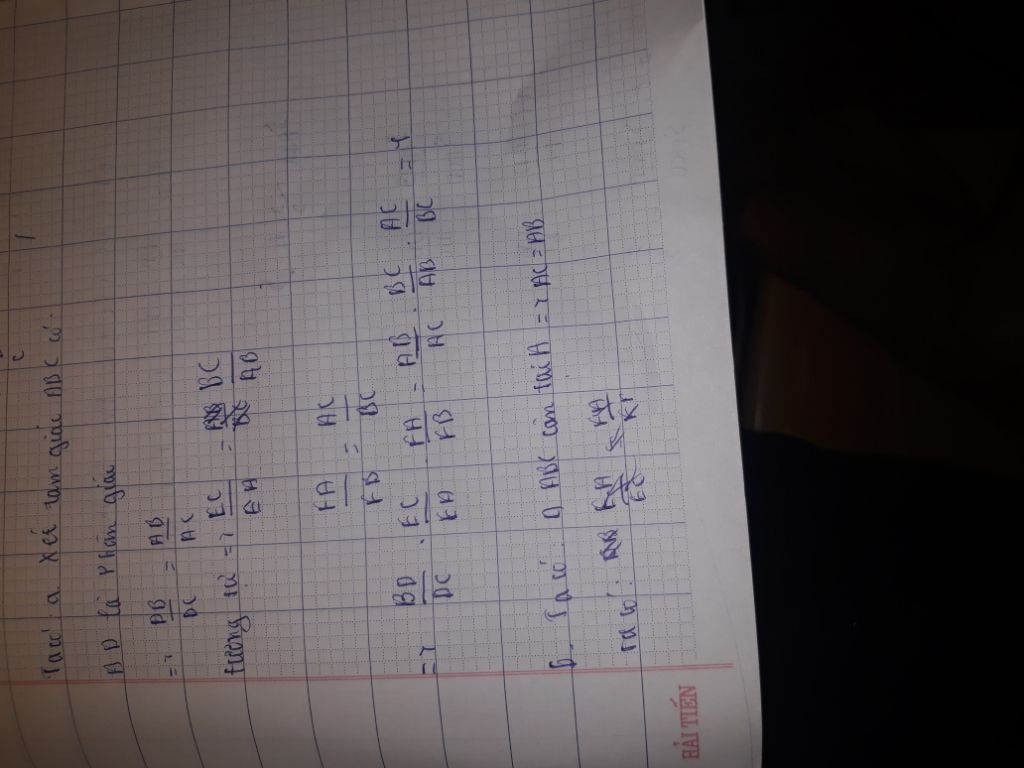 a. Xét tam giác ABC có
AD là phân giác
=> DB/DC = AB/AC
tương tự => EC/EA = BC/AB
FA/FB = AC/BC
=> BD/DC . EC/EA . FA/FB = AB/AC . BC/AB . AC/BC = 1
b. Ta có: Δ ABC cân tại A => AC = AB
Ta có:
HẢI TIẾN